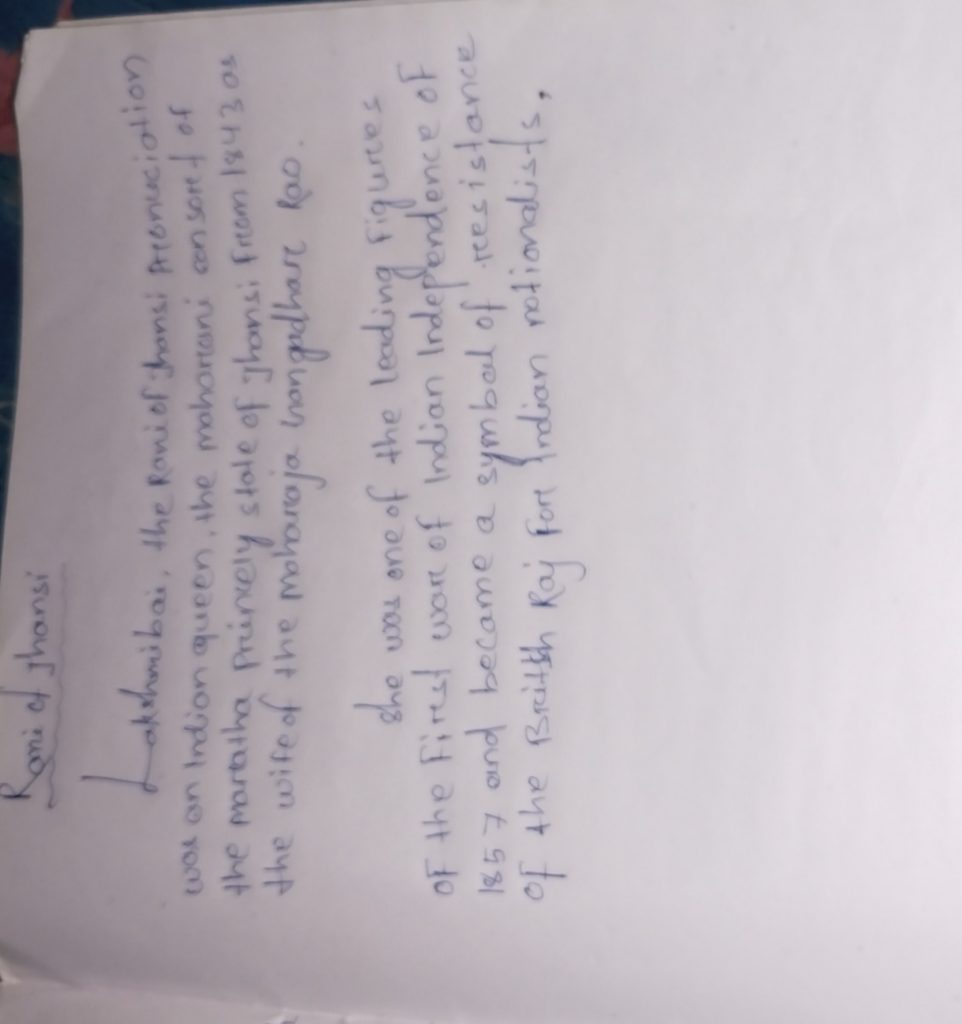 Rani of Jhansi
Lakshmibai, the Rani of Jhansi Pronuciation
was an Indian queen, the maharani consort of
the maratha Princely state of Jhansi From 1843 as
the wife of the maharaja Gangadhar Rao.
She was one of the leading Figures
of the First war of Indian Independence of
1857 and became a symbal of resistance
of the British Raj for Indian nationalists,